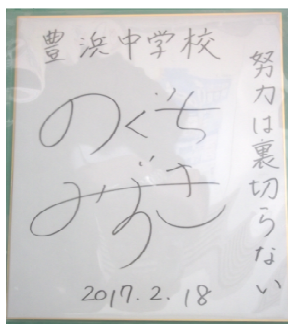 豊浜中学校
努力は裏切らない
のぐち
みずき
2017.2.18